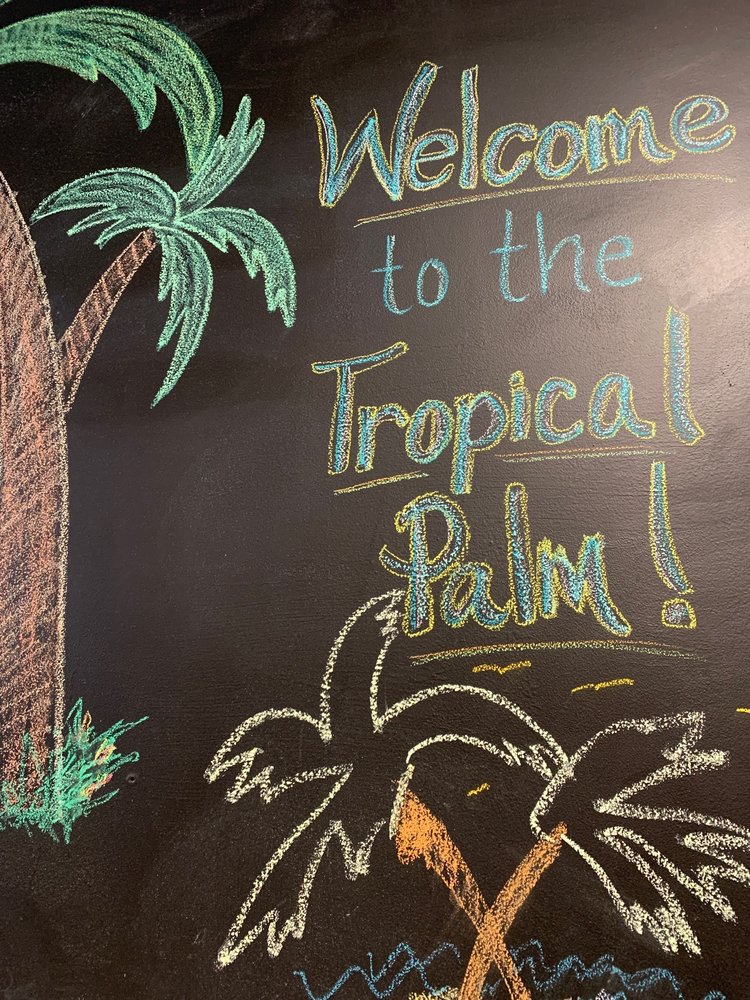 Welcome
to the
Tropical
Palm!